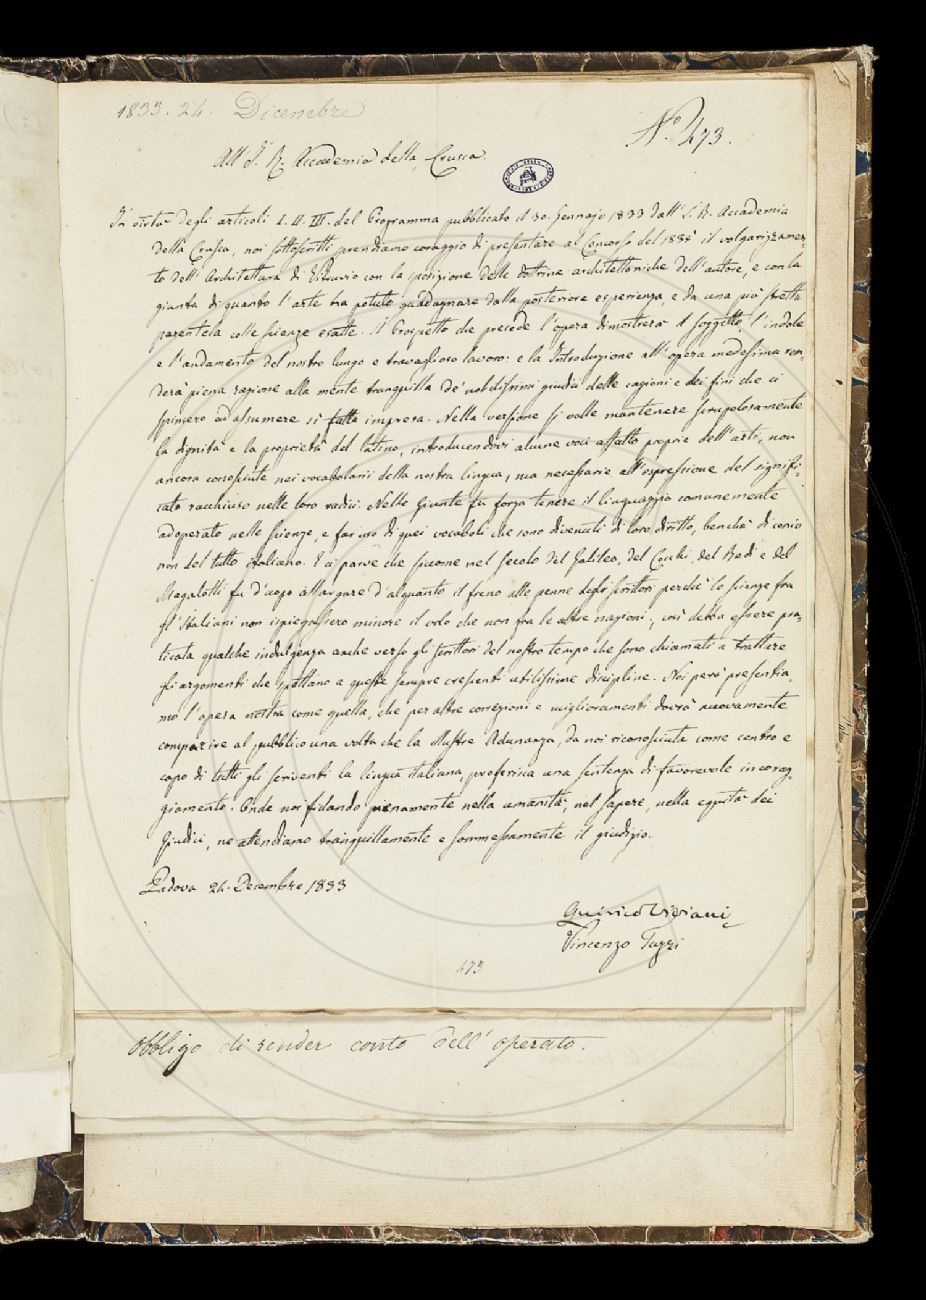 1833. 24. Dicembre
N.° 473.
All' I. R. Accademia della Crusca.
In virtù degli articoli I. II. III. del Programma pubblicato il 30. Gennajo 1833 dall' I. R. Accademia
della Crusca, noi sottoscritti prendiamo coraggio di presentare al Concorso del 1835 il volgarizzamen-
to dell' Architettura di Vitruvio con la sposizione delle dottrine architettoniche dell' autore, e con la
giunta di quanto l' arte ha potuto guadagnare dalla posteriore esperienza, e da una più stretta
parentela colle scienze esatte. Il Prospetto che precede l' opera dimostrerà il soggetto, l' indole
e l' andamento del nostro lungo e travaglioso lavoro: e la Introduzione all' opera medesima ren-
derà piena ragione alla mente tranquilla de' nobilissimi giudici delle cagioni e dei fini che ci
spinsero ad assumere sì fatta impresa. Nella versione si volle mantenere scrupolosamente
la dignità e la proprietà del latino, introducendovi alcune voci affatto proprie dell' arti, non
ancora conosciute nei vocabolarii della nostra lingua, ma necessarie all' espressione del signifi-
cato racchiuso nelle loro radici. Nelle Giunte fu forza tenere il linguaggio comunemente
adoperato nelle scienze, e far uso di quei vocaboli che sono divenuti di loro diritto, benchè di conio
non del tutto italiano. E ci parve che siccome nel secolo del Galileo, del Cocchi, del Redi e del
Magalotti fu d' uopo allargare d' alquanto il freno alle penne degli scrittori perchè le scienze fra
gl' Italiani non ispiegassero minore il volo che non fra le altre nazioni, così debba essere pra-
ticata qualche indulgenza anche verso gli scrittori del nostro tempo che sono chiamati a trattare
gli argomenti che spettano a queste sempre crescenti utilissime discipline. Noi però presentia-
mo l' opera nostra come quella, che per altre correzioni e miglioramenti dovrà nuovamente
comparire al pubblico una volta che la illustre Adunanza, da noi riconosciuta come centro e
capo di tutti gli scriventi la lingua italiana, proferisca una sentenza di favorevole incorag-
giamento. Onde noi fidando pienamente nella umanità, nel sapere, nella equità dei
Giudici, ne attendiamo tranquillamente e sommessamente il giudizio.
Padova 24. Decembre 1833
Quirico Viviani
Vincenzo Tuzzi
473
obbligo di render conto dell' operato.